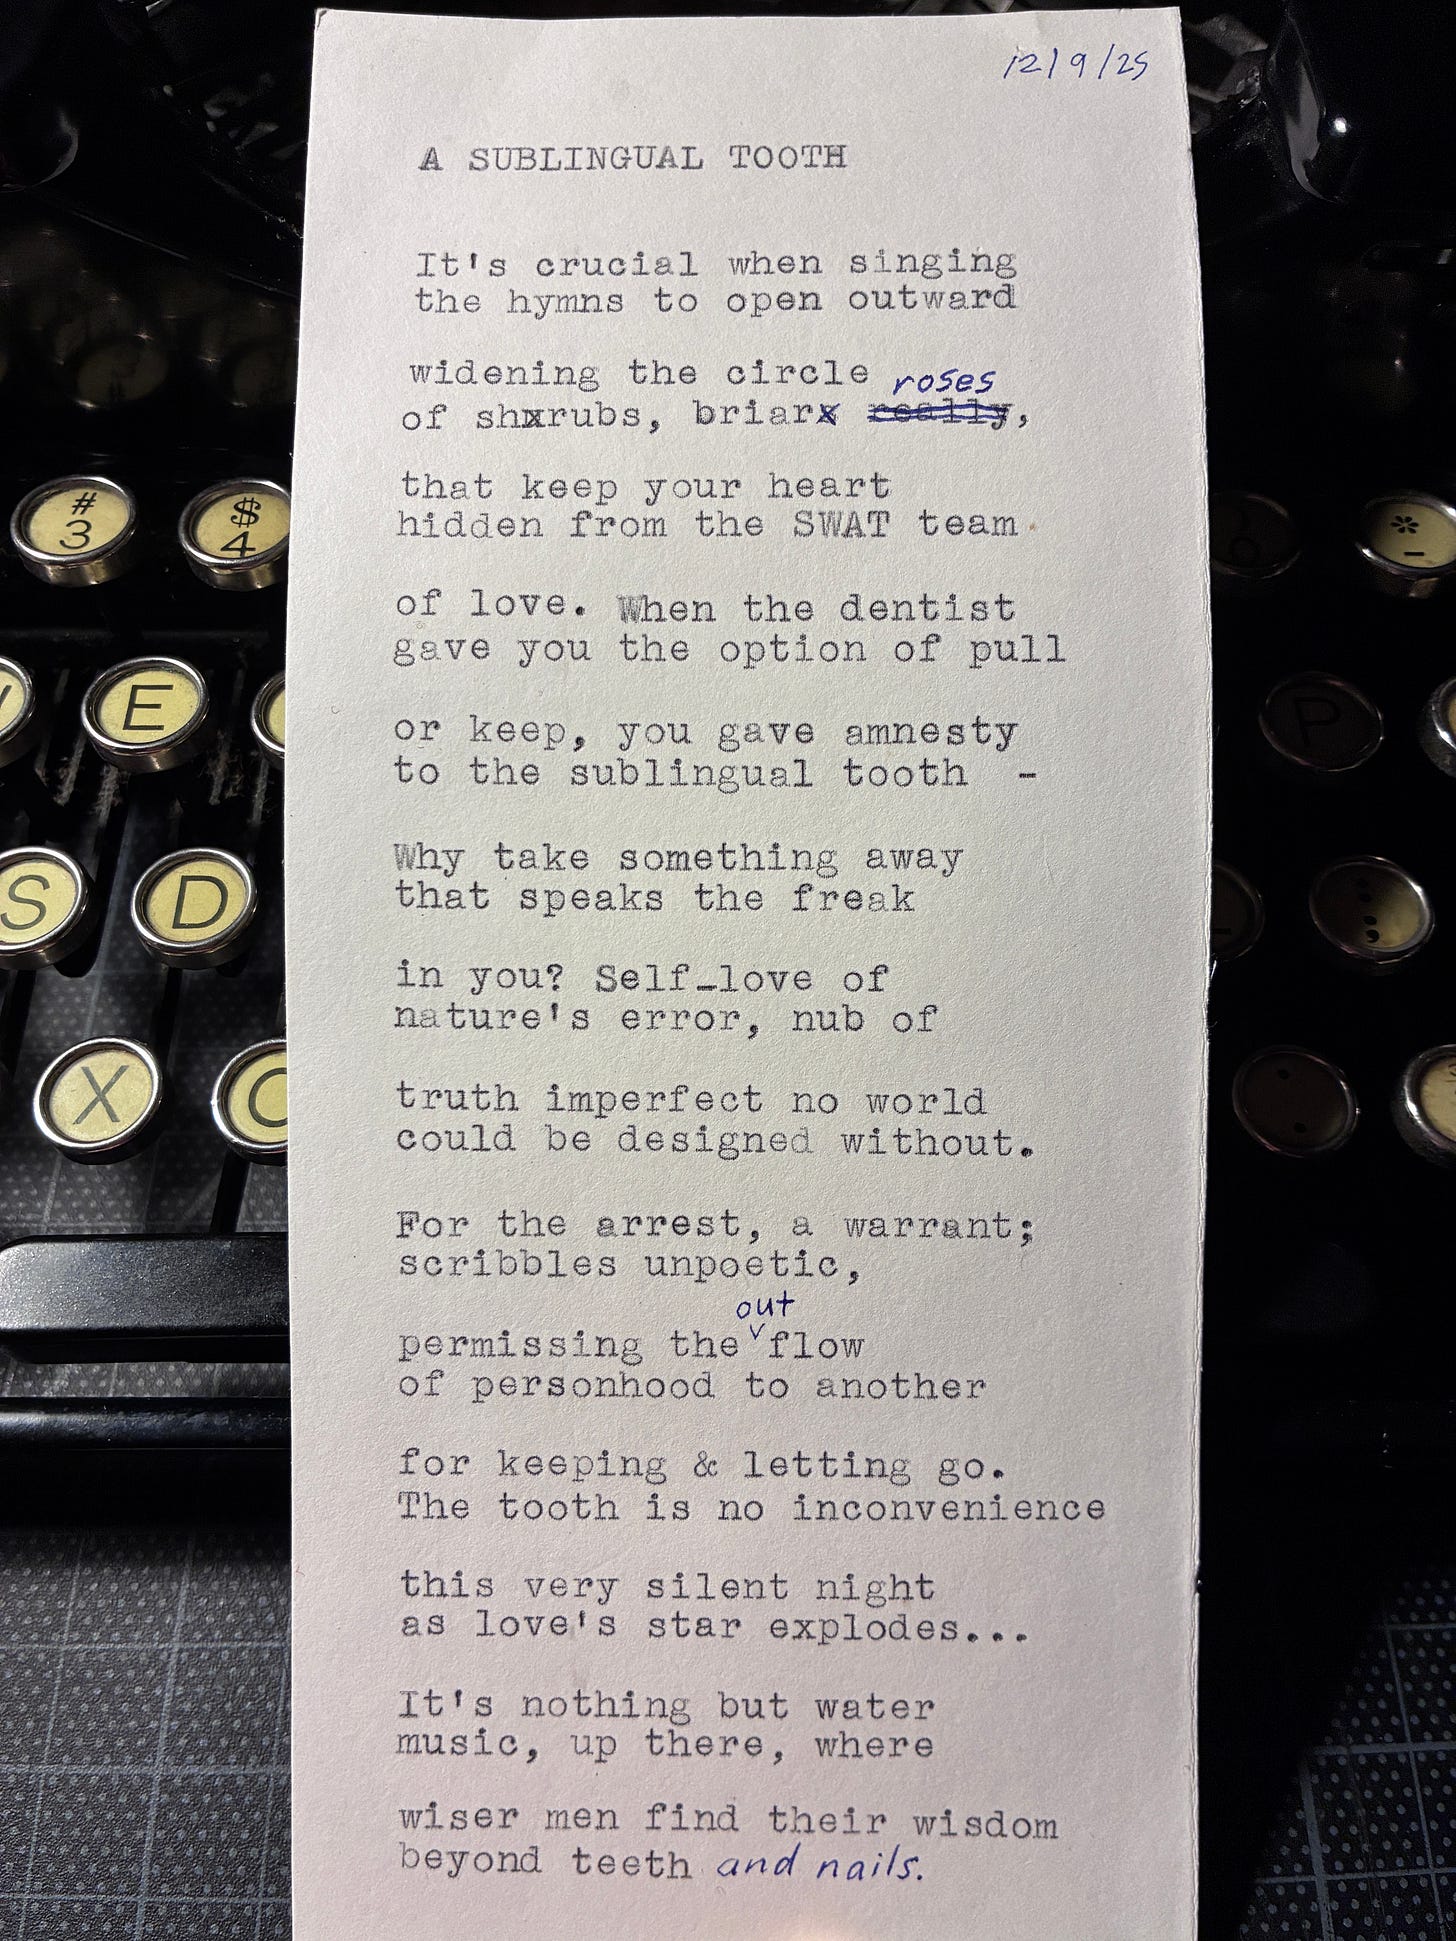 12/9/25
A SUBLINGUAL TOOTH
It's crucial when singing
the hymns to open outward
widening the circle
roses
of shxrubs, briarx really,
that keep your heart
hidden from the SWAT team
of love. When the dentist
gave you the option of pull
or keep, you gave amnesty
to the sublingual tooth -
Why take something away
that speaks the freak
in you? Self-love of
nature's error, nub of
truth imperfect no world
could be designed without.
For the arrest, a warrant;
scribbles unpoetic,
out
permissing the flow
of personhood to another
for keeping & letting go.
The tooth is no inconvenience
this very silent night
as love's star explodes...
It's nothing but water
music, up there, where
wiser men find their wisdom
beyond teeth and nails.
#
3
$
4
E
S
D
X
C
*
-
P
;